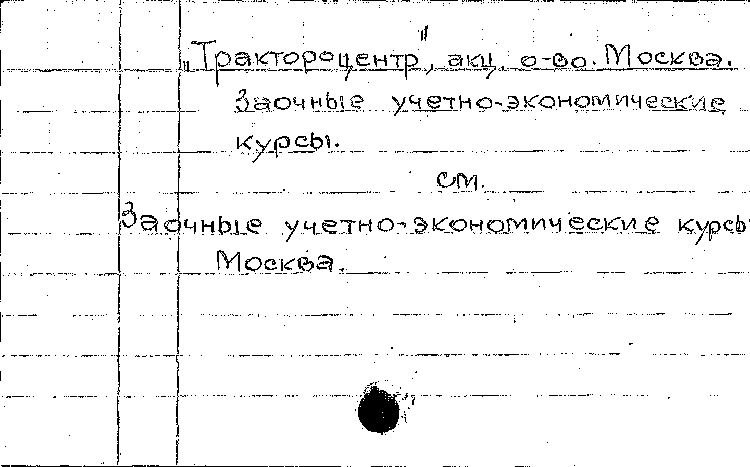 „Трактороцентр", акц. о-во. Москва.
Заочные учетно-экономические
курсы.
см.
Заочные учетно-экономические курсы
Москва.